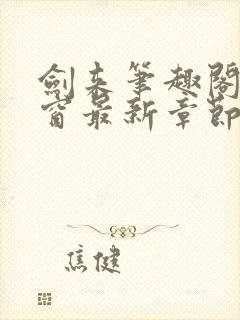 劍来筆趣閣
窗最新章節
焦健